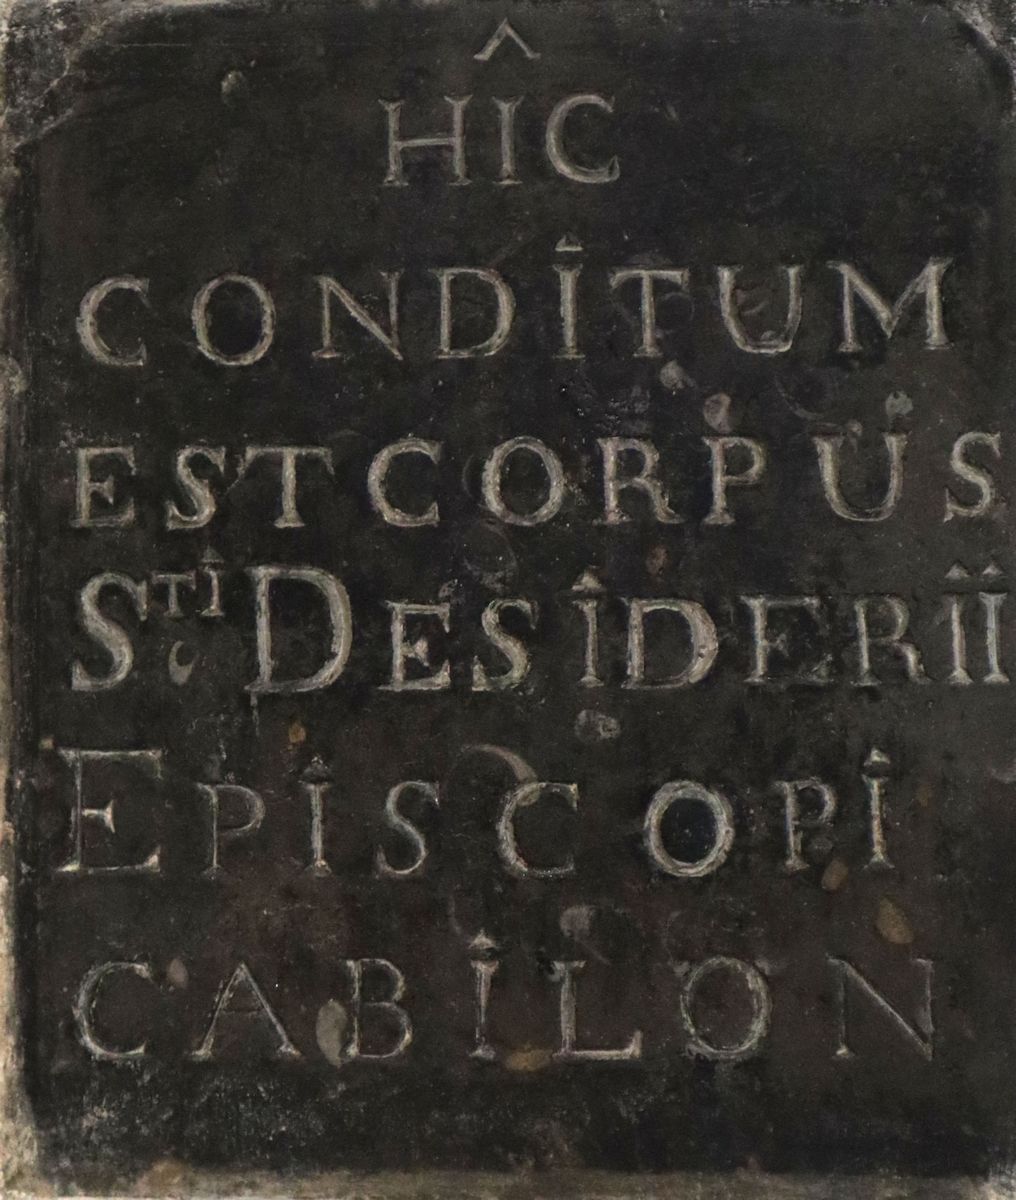 HIC
CONDITUM
EST CORPUS
STI DESIDERII
EPISCOPI
CABILON